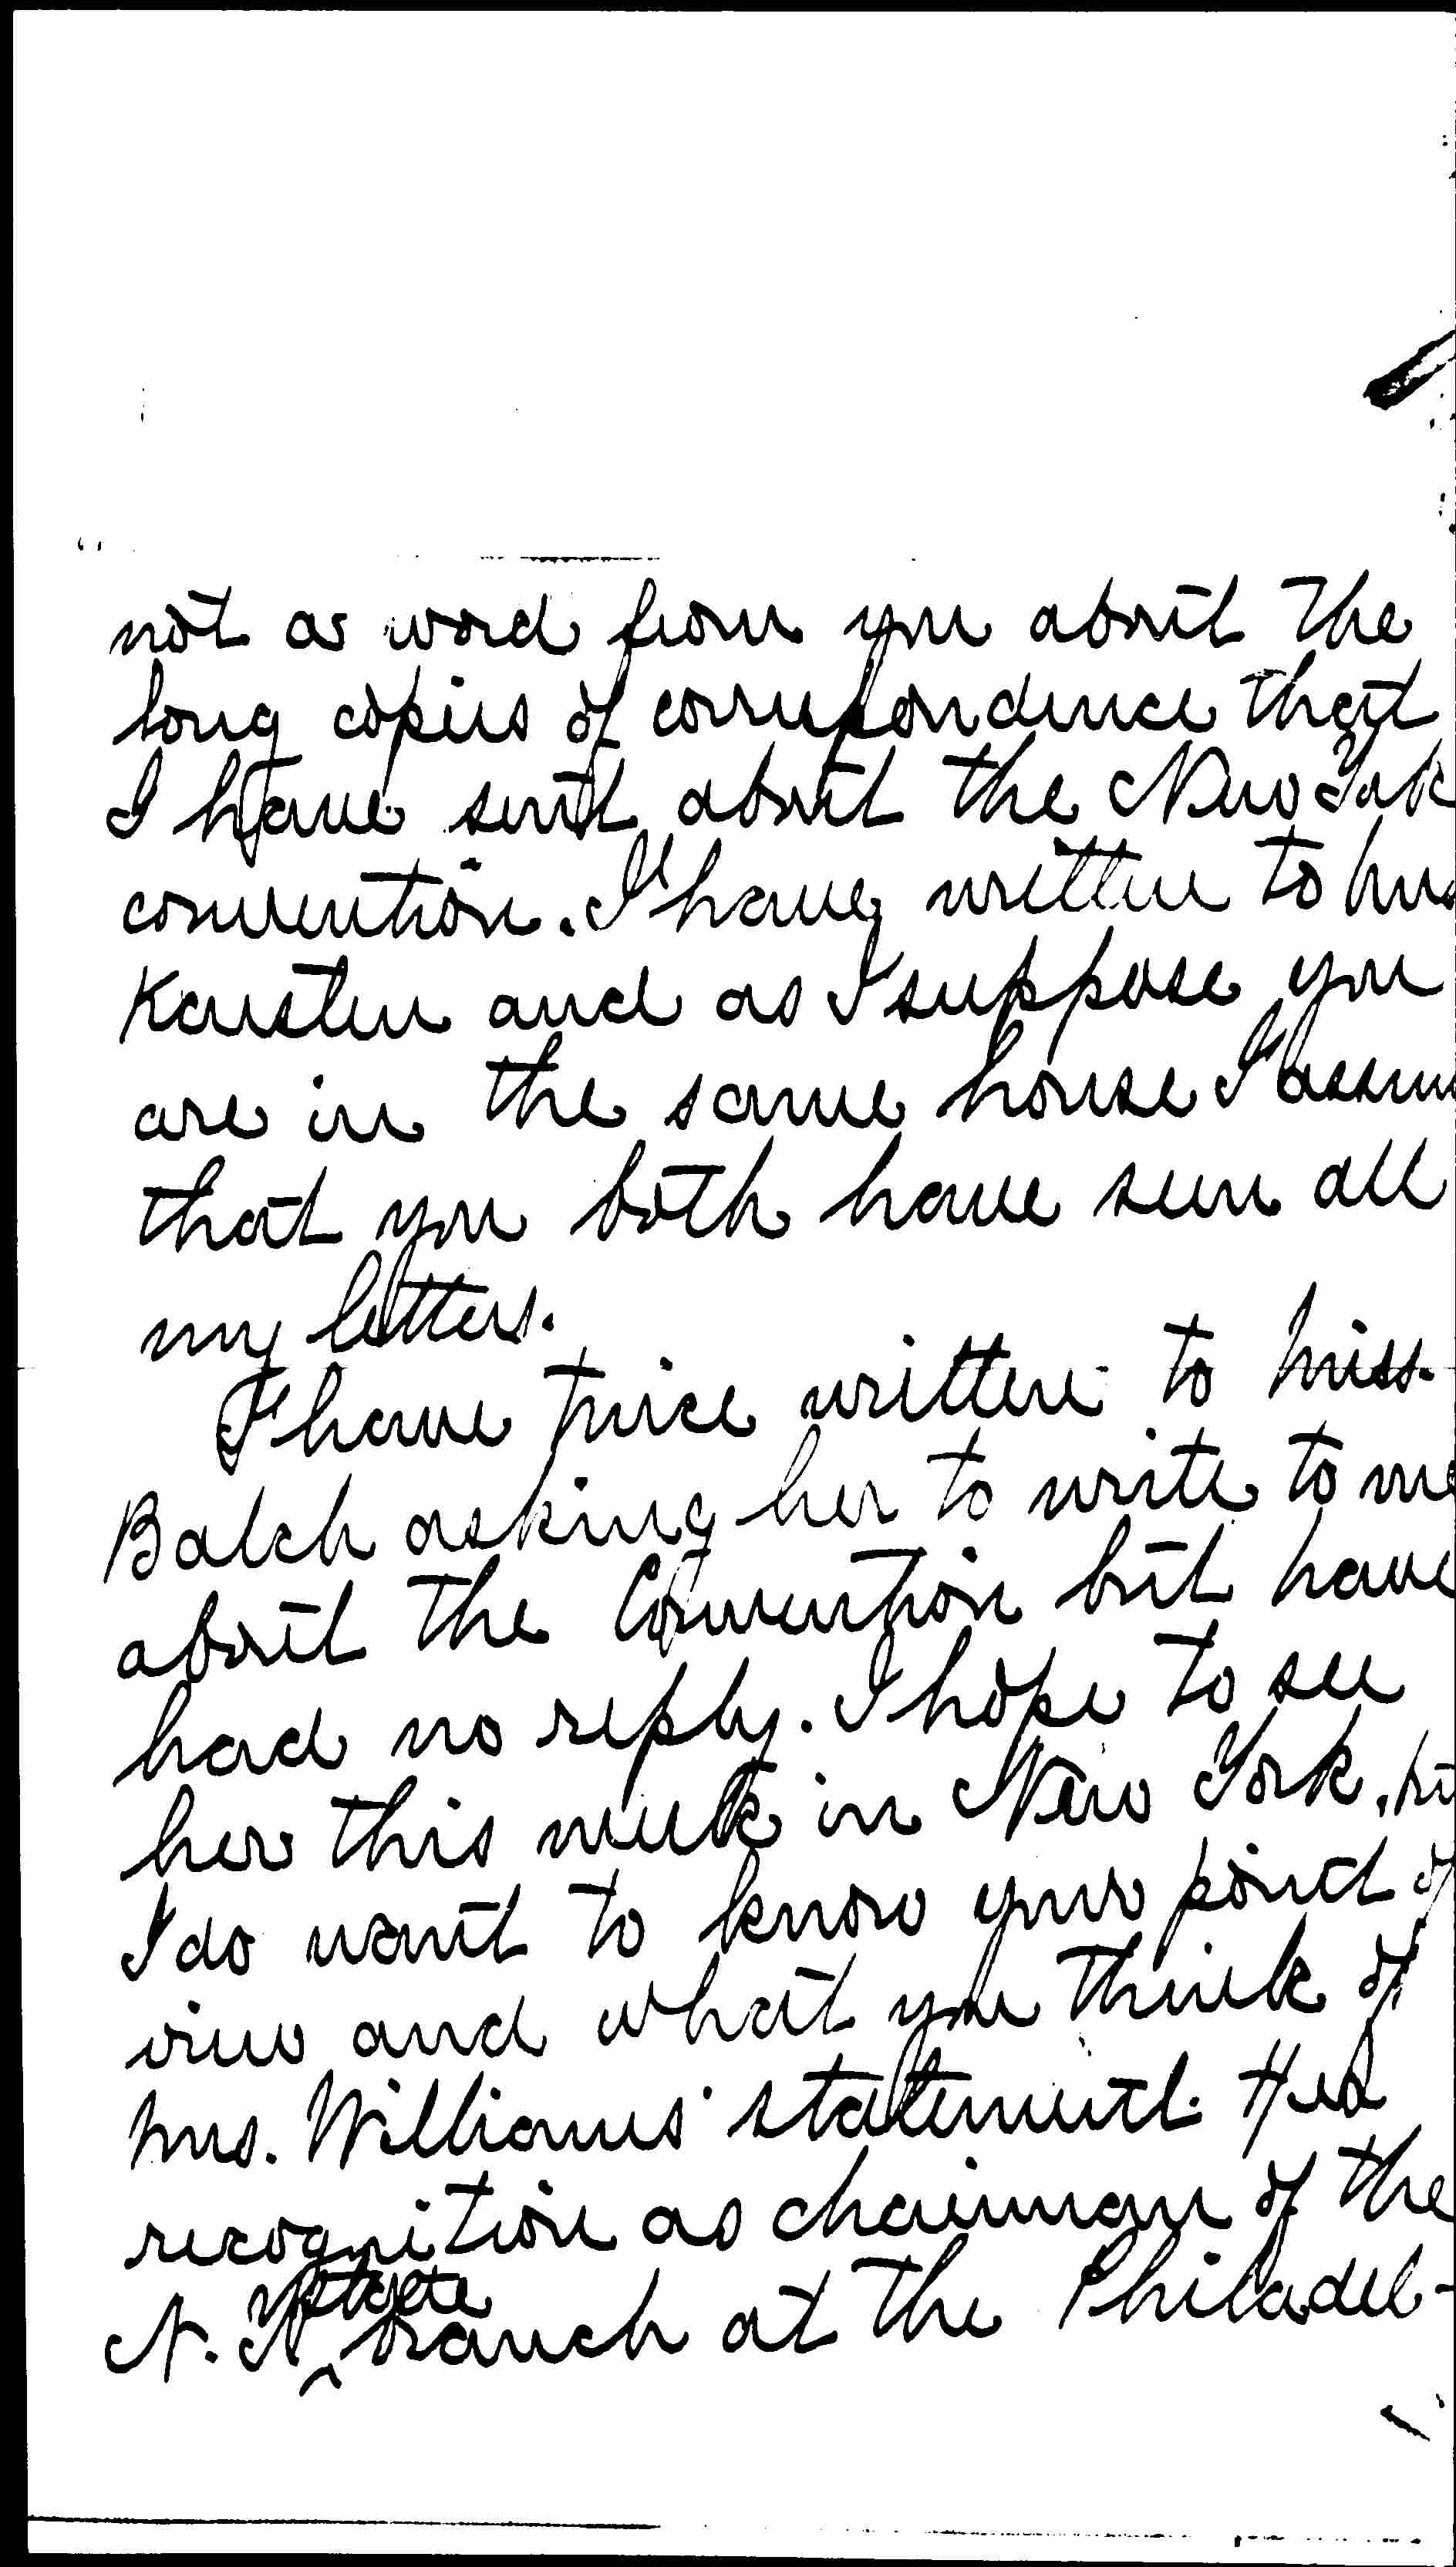 not a word from you about the
long copies of correspondence that
I have sent about the New York
convention. I have written to Mrs
Karsten and as I suppose you
are in the same house I assum
that you both have seen all
my letters.
I have twice written to Miss
Balch asking her to write to me
about the Convention but have
had no reply. I hope to see
her this week in New York, but
I do want to know your point of
view and what you think of
Mrs. Williams' statement. Her
recognition as chairman of the
State
N. Y. branch at the Philadel-